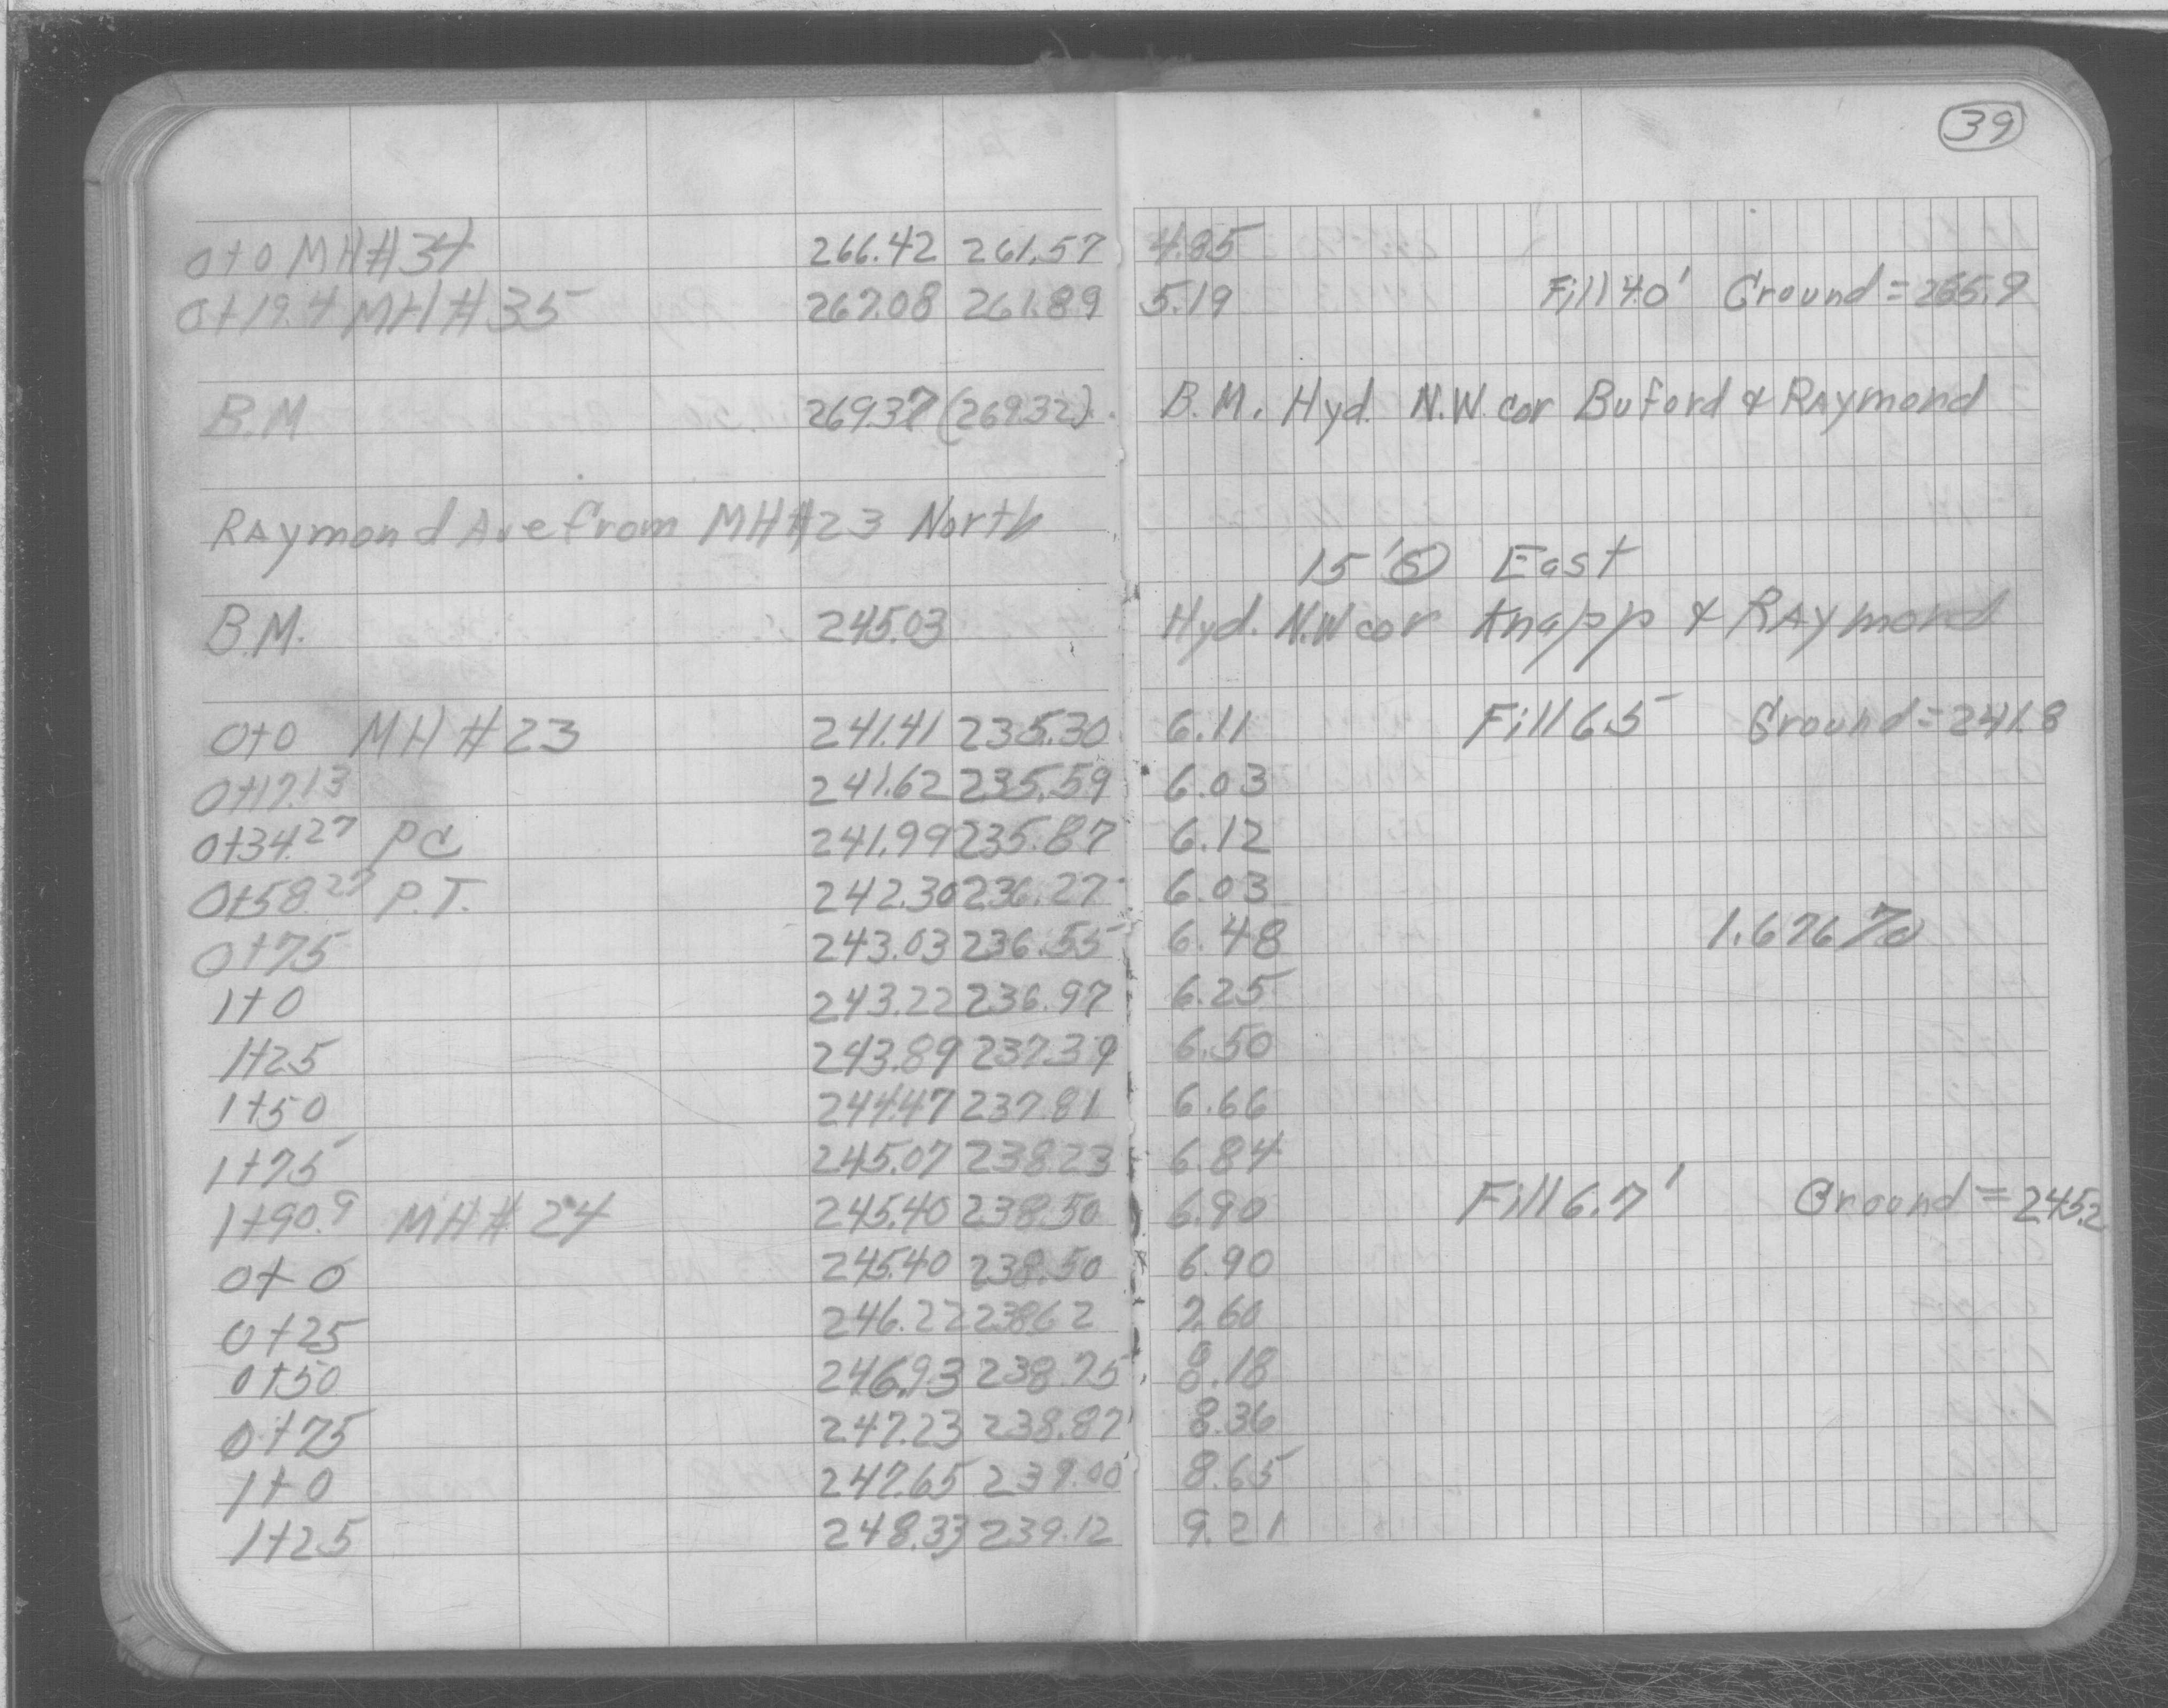 39
0+0 MH#34 266.42 261.57 4.85
0+19.4 MH#35 267.08 261.89 5.19 Fill 4.0' Ground=265.9
B.M 269.37 (269.32) B.M. Hyd. N.W. cor Buford & Raymond
Raymond Ave from MH#23 North
15' East
B.M. 245.03 Hyd. N.W cor Knapp & Raymond
0+0 MH#23 241.41 235.30 6.11 Fill 6.5 Ground=241.8
0+17.13 241.62 235.59 6.03
0+34.27 PC 241.99 235.87 6.12
0+58.27 P.T. 242.30 236.27 6.03
0+75 243.03 236.55 6.48 1.676%
1+0 243.22 236.97 6.25
1+25 243.89 237.39 6.50
1+50 244.47 237.81 6.66
1+75 245.07 238.23 6.84
1+90.9 MH#24 245.40 238.50 6.90 Fill 6.7' Ground=245.2
0+0 245.40 238.50 6.90
0+25 246.22 238.62 7.60
0+50 246.93 238.75 8.18
0+75 247.23 238.87 8.36
1+0 247.65 239.00 8.65
1+25 248.33 239.12 9.21